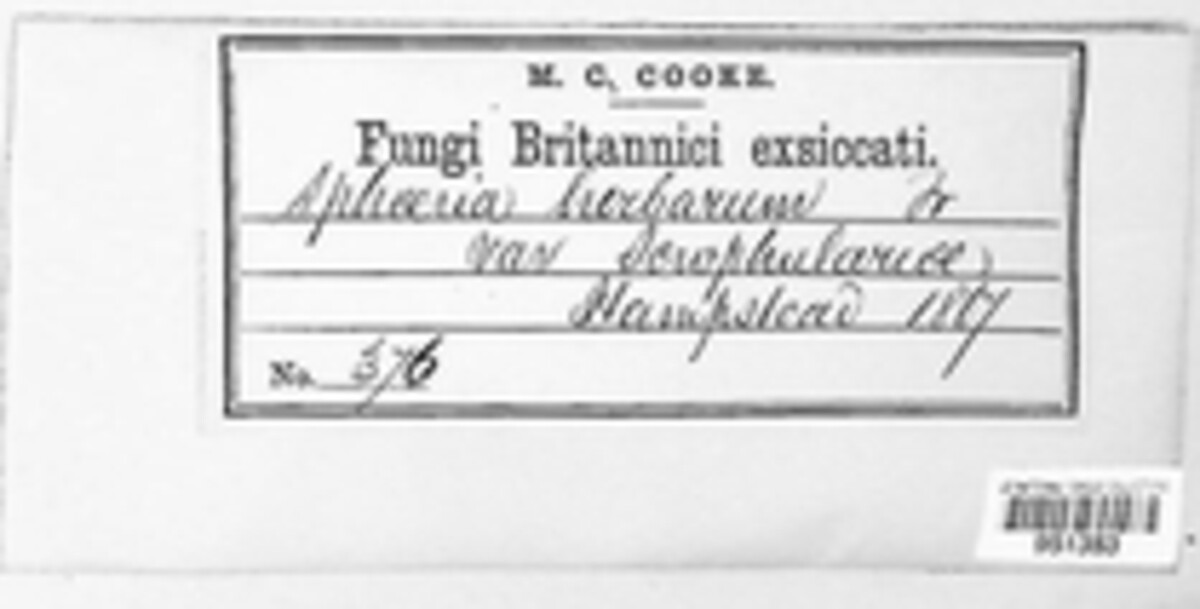 M. C. COOKE.
Fungi Britannici exsiccati.
Sphaeria herbarum Fr
var Scrophulariae,
Hampstead
No. 376